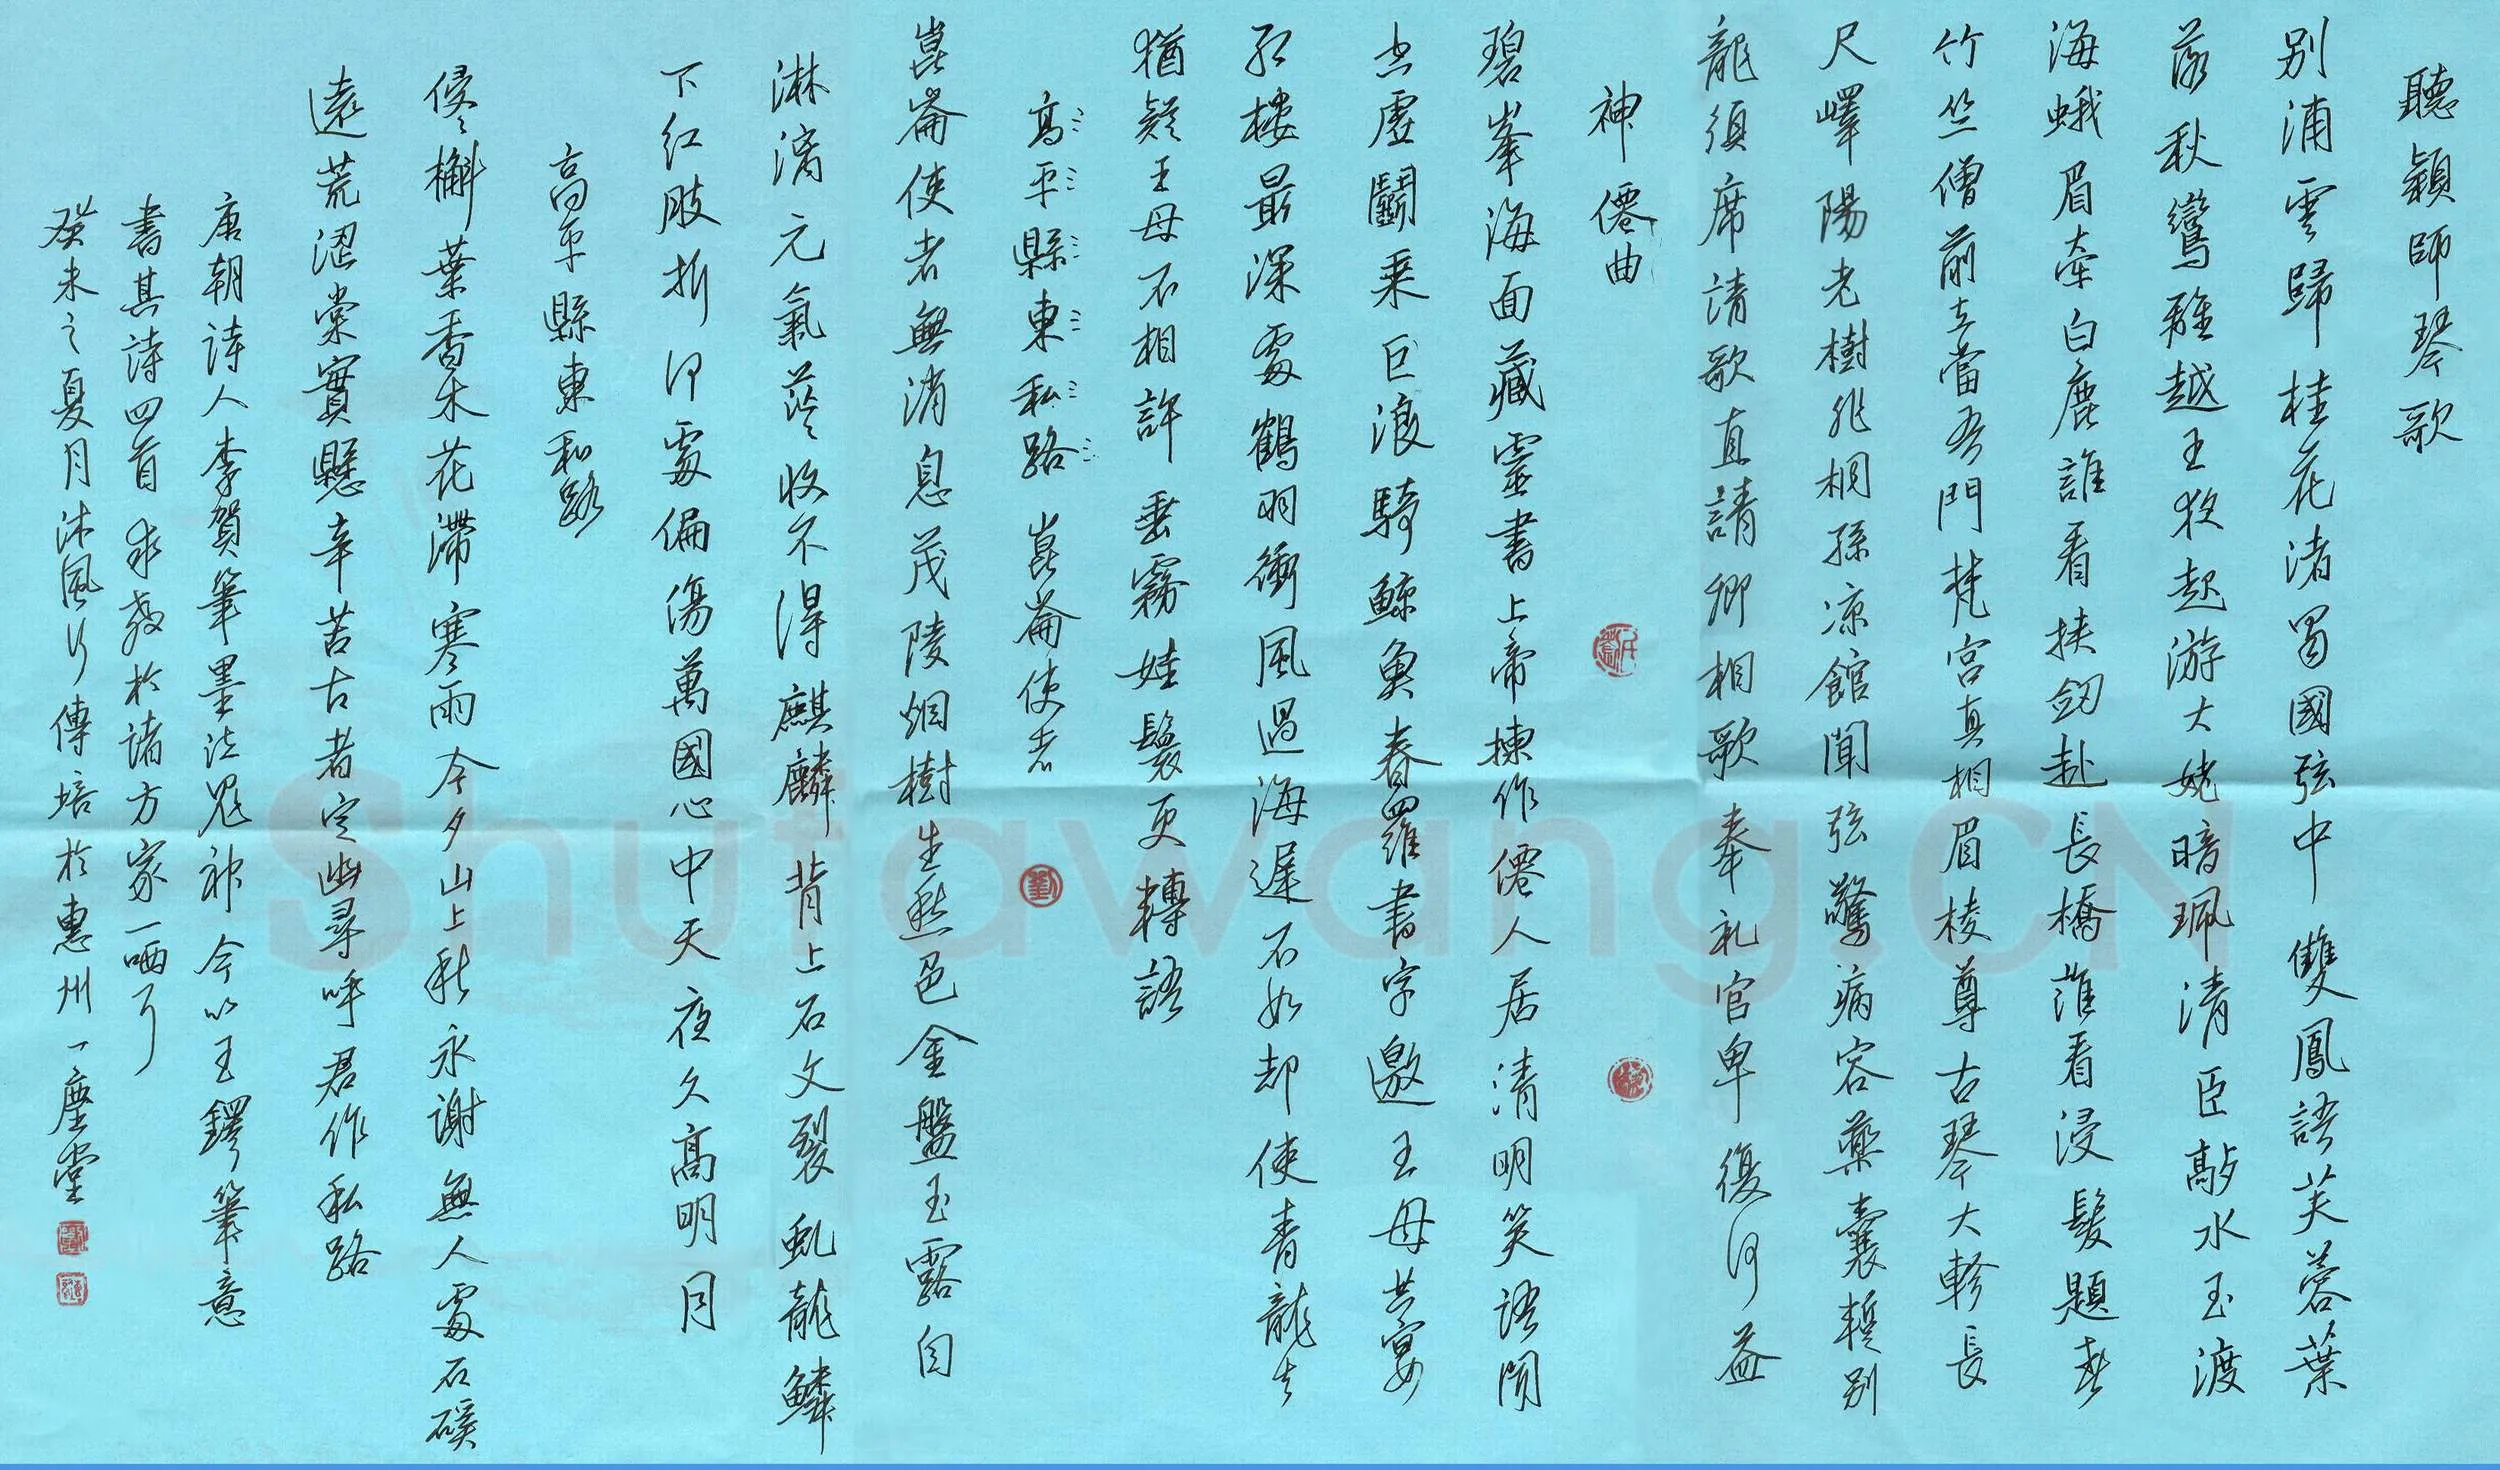 聽穎師琴歌
別浦雲歸桂花渚蜀國弦中雙鳳語芙蓉葉
落秋鸞離越王夜起游大姥暗珮清臣敲水玉渡
海蛾眉牽白鹿誰看挾劒赴長橋誰看浸髮題春
竹竺僧前立當吾門梵宮真相眉棱尊古琴大軫長
尺嶧陽老樹非桐孫涼館聞弦驚病容藥囊暫別
龍須席請歌直請卿相歌奉礼官卑復何益
神僊曲
碧峯海面藏靈書上帝揀作僊人居清明笑語聞
空虛鬬乘巨浪騎鯨魚春羅書字邀王母共宴
紅樓最深處鶴羽衝風過海遲不如却使青龍去
猶疑王母不相許垂霧娃鬟更轉語
高平縣東私路 崑崙使者
崑崙使者無消息茂陵烟樹生愁色金盤玉露自
淋漓元氣茫々收不得麒麟背上石文裂虬龍鱗
下紅肢折何處偏傷萬國心中天夜久高明月
高平縣東私路
侵々槲葉香木花滯寒雨今夕山上秋永謝無人處石磎
遠荒澀棠實懸辛苦古者定幽尋呼君作私路
唐朝詩人李賀筆墨泣鬼神今以王鐸筆意
書其詩四首求教於諸方家一哂了
癸未之夏月沐風行傳培於惠州一塵堂
Shufawang.CN